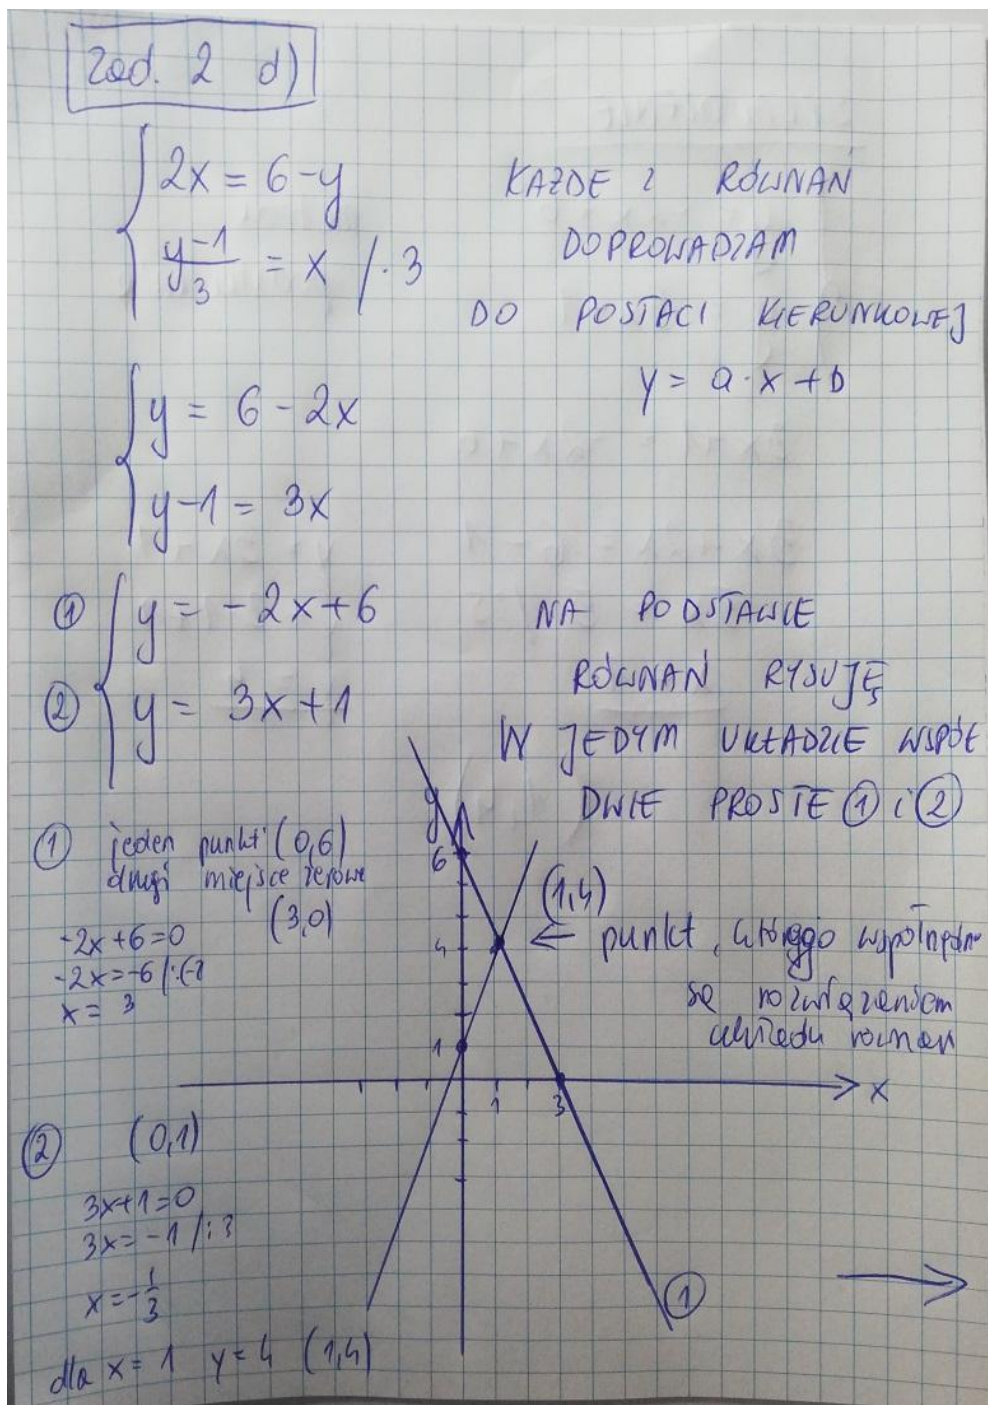 Zad. 2 d)
2x = 6 - y
KAŻDE Z RÓWNAŃ
DOPROWADZAM
y-1/3 = x /·3
DO POSTACI KIERUNKOWEJ
y = a·x+b
y = 6 - 2x
y-1 = 3x
① y = -2x+6
NA PODSTAWIE
RÓWNAŃ RYSUJĘ
② y = 3x+1
W JEDYM UKŁADZIE WSPÓŁ
DWIE PROSTE ① i ②
① jeden punkt (0,6)
drugi miejsce zerowe
(3,0)
-2x+6=0
-2x=-6 /:(-2
x = 3
y
6
(1,4)
4
← punkt, którego
są rozwiązaniem
układu równań
1
1
3
x
② (0,1)
3x+1=0
3x=-1 /:3
x=-1/3
①
dla x=1 y=4 (1,4)